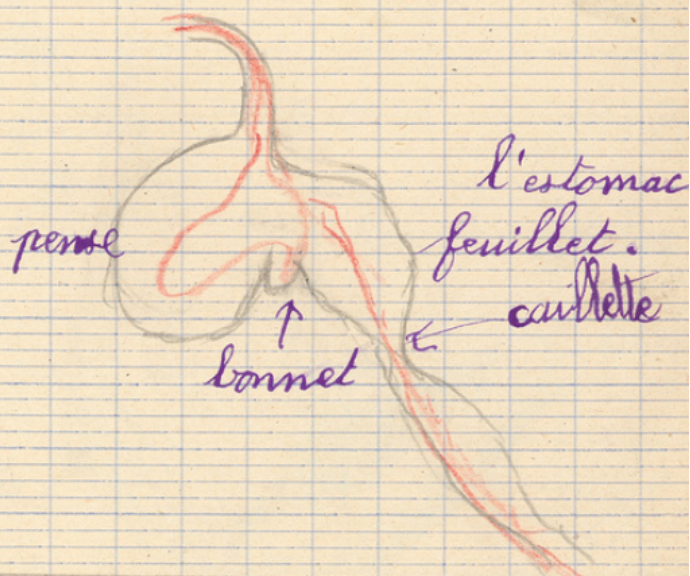 l'estomac
pense
feuillet.
caillette
bonnet